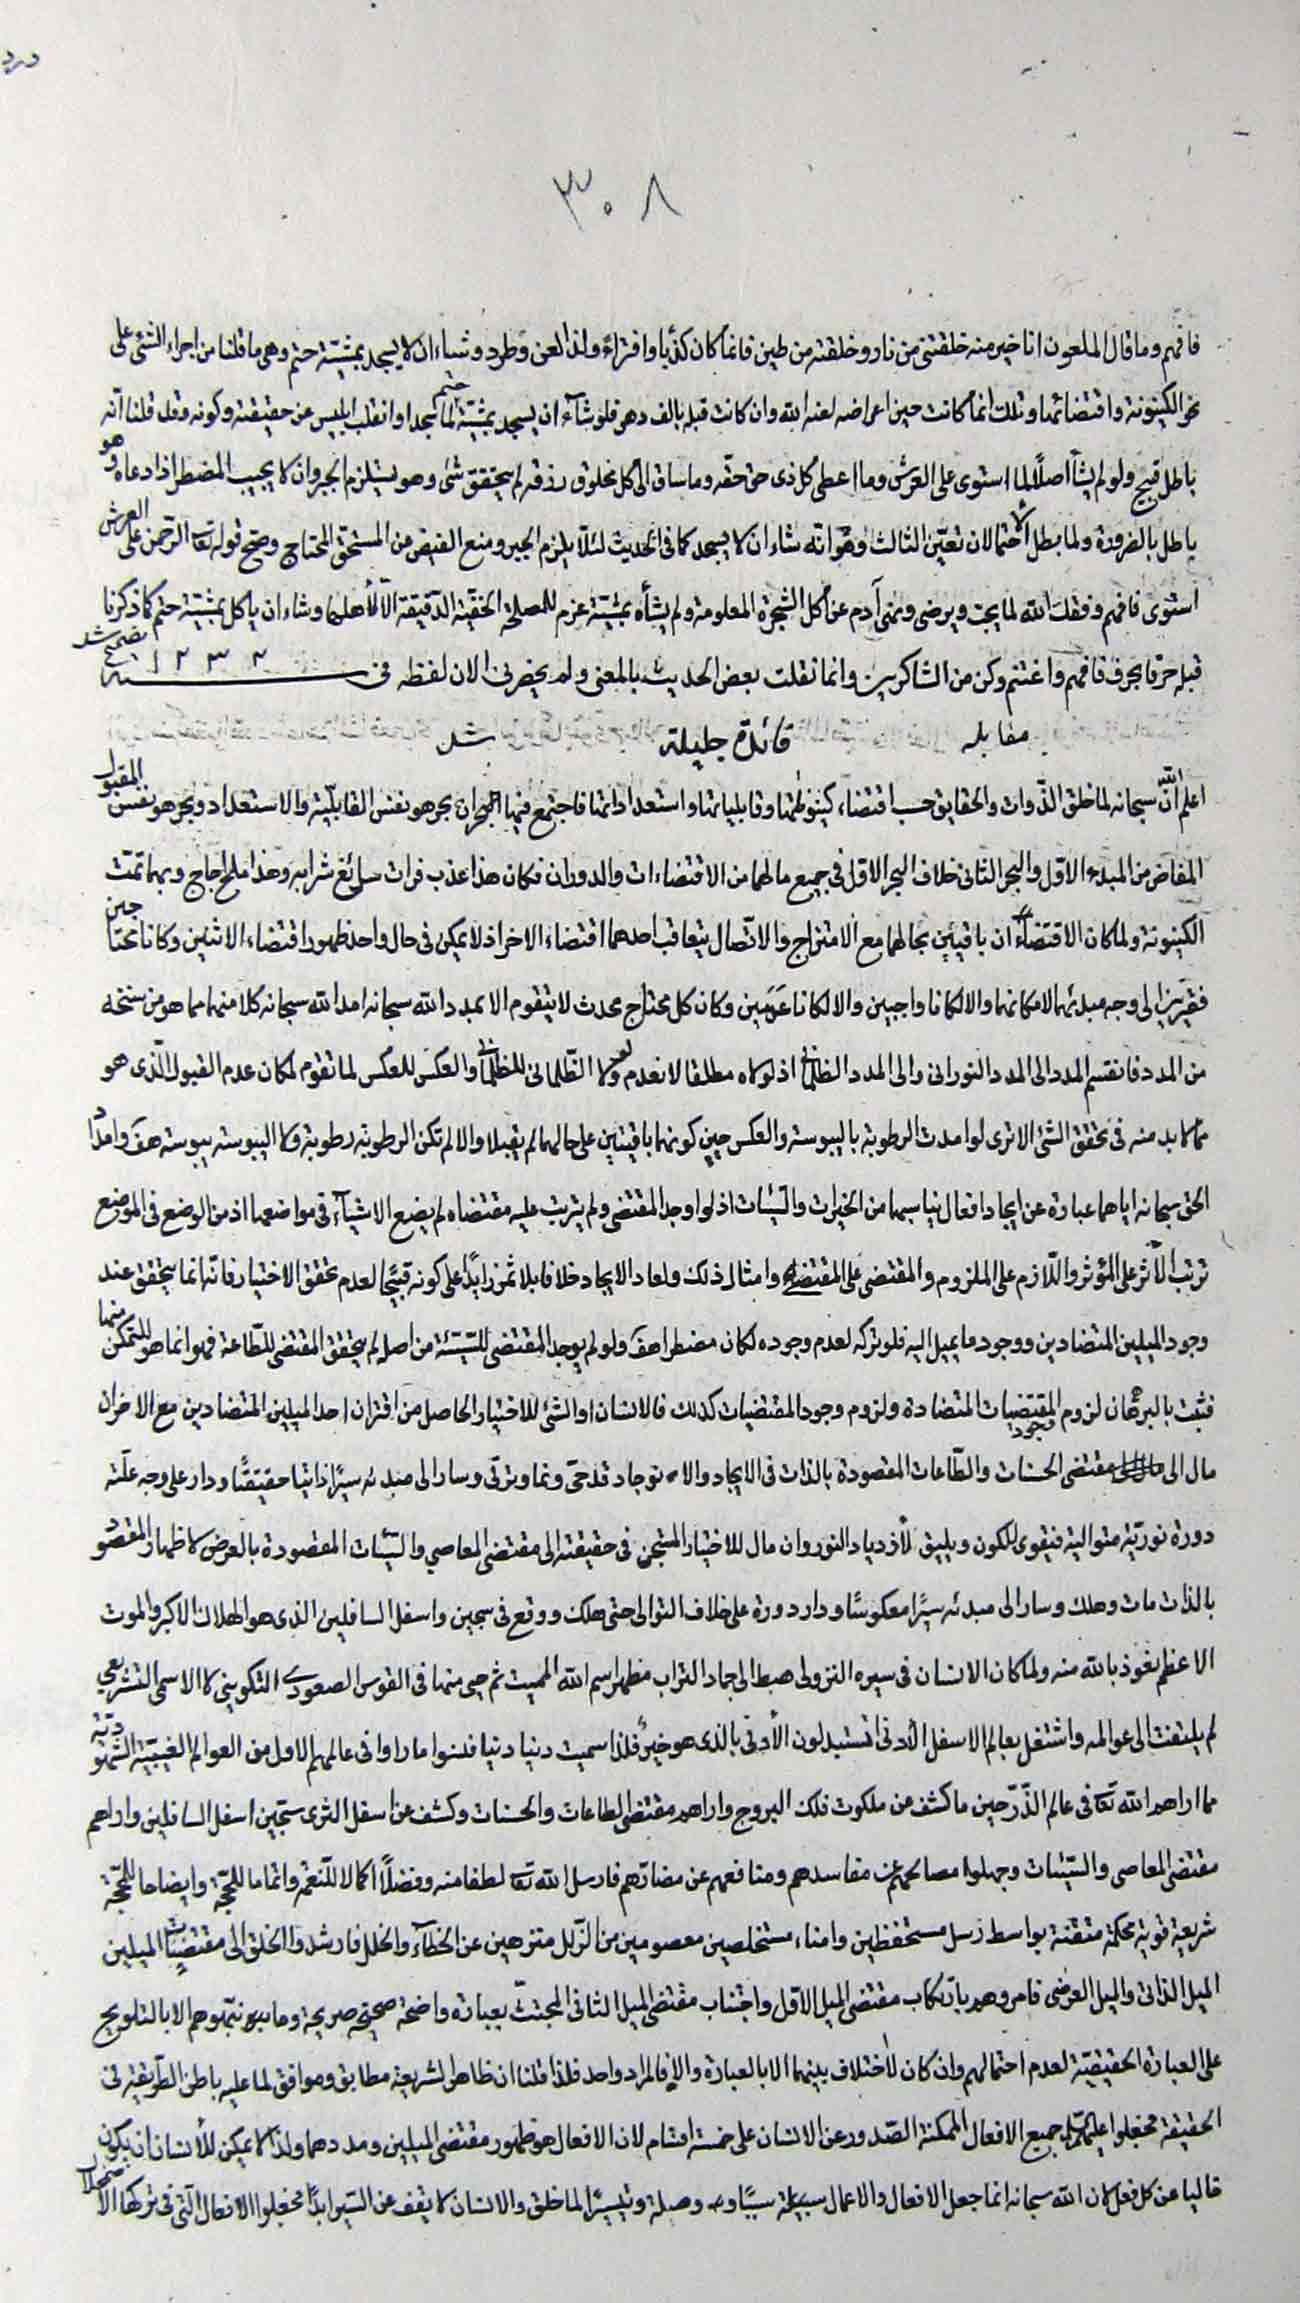 ٣٠٨
فافهم وما قال الملعون انا خير منه خلقتني من نار وخلقته من طين فانما كان كذبا وافتراء ولذا لعن وطرد وشاء ان لا يسجد بمشية حتم وهي ما قلنا من اجراء الشئ على
نحو الكينونة واقتضائها وتلك انما كانت حين اعراضه لعنه الله وان كانت قبله بالف دهر فلو شاء ان يسجد بمشية حتم لما كيجد اوانقلب ابليس عن حقيقته وكونه فقد قلنا انه
باطل قبيح ولو لم يشأ اصلا لما استوى على العرش وما اعطى كل ذي حق حقه وما ساق الى كل مخلوق رزقه لم يتحقق شئ وهو يستلزم الجبر وان لا يجيب المضطر اذا دعاه وهو
باطل بالضرورة ولما بطل الاحتمالان تعين الثالث وهو انه شاء ان لا يسجد كما في الحديث لئلا يلزم الجبر ومنع الفيض من المستحق المحتاج وصح قوله تعا الرحمن على العرش
استوى فافهم وفقك الله لما يحب ويرضى ونهى آدم عن اكل الشجرة المعلومة ولم يشأه بمشية عزم للمصلحة الخفية الدقيقة الا لاهلها وشاء ان ياكل بمشية حتم كما ذكرنا
قبله حرفا بحرف فافهم واغتنم وكن من الشاكرين وانما نقلت بعض الحديث بالمعنى ولم يحضرني الان لفظه في سنه ١٢٣٢ تصحيح شد
مقابله فائدة جليلة شد
اعلم ان الله سبحانه لما خلق الذوات والحقايق حسب اقتضاء كينونتها وقابلياتها واستعداداتها فاجتمع فيها البحران بحر هو نفس القابلية والاستعداد وبحر هو نفس المقبول
المفاض من المبدء الاول والبحر الثاني خلاف البحر الاول في جميع ما لهما من الاقتضاءات والدوران فكان هذا عذب فرات سائغ شرابه وهذا ملح اجاج وبهما تمت
الكينونة ولما كان الاقتضاءان باقيين بحالهما مع الامتزاج والاتصال يتعاقب احدهما اقتضاء الاخر اذ لا يمكن في حال واحد ظهور اقتضاء الاثنين وكانا محتاجين
فقيرين الى وجه مبدئهما لامكانهما والا لكانا واجبين والا لكانا عدمين وكان كل محتاج محدث لا يتقوم الا بمدد الله سبحانه امد الله سبحانه كلا منهما مما هو من سنخه
من المدد فانقسم المدد الى المدد النوراني والى المدد الظلماني اذ لولاه مطلقا لانعدم ولولا الظلماني للظلماني والعكس للعكس لما تقوم لمكان عدم القبول الذي هو
مما لا بد منه في تحقق الشئ الا ترى لو امدت الرطوبة باليبوسة والعكس حين كونهما باقيتين على حالهما لم يقبلا والا لم تكن الرطوبة رطوبة ولا اليبوسة يبوسة هف وامداد
الحق سبحانه اياهما عبارة عن ايجاد افعال يناسبهما من الخيرات والسيئات اذ لو اوجد المقتضي ولم يترتب عليه مقتضاه لم يضع الاشياء في مواضعها اذ من الوضع في الموضع
ترتب الاثر على المؤثر واللازم على الملزوم والمقتضى على المقتضي وامثال ذلك ولعاد الايجاد خلافا بلا ثمر زايدا على كونه قبيحا لعدم تحقق الاختيار فانه انما يتحقق عند
وجود الميلين المتضادين ووجود ما يميل اليه فلو تركه لعدم وجوده لكان مضطرا هف ولو لم يوجد المقتضي للسيئة من اصله لم يتحقق المقتضي للطاعة فهو انما هو للتمكن منهما
فثبت بالبرهان لزوم وجود المقتضيات المتضادة ولزوم وجود المقتضيات كذلك فالانسان او الشئ للاختيار الحاصل من اقتران احد الميلين المتضادين مع الاخر ان
مال الى مقتضى الحسنات والطاعات المقصودة بالذات في الايجاد والا نوجاد قد حي ونما وترقى وسار الى مبدئه سيرا ذاتيا حقيقيا ودار على وجه علته
دورة نورية متوالية فتقوى للكون ويليق لازدياد النور وان مال للاختيار المستجن في حقيقته الى مقتضى المعاصي والسيئات المقصودة بالعرض لاظهار المقصود
بالذات مات وهلك وسار الى مبدئه سيرا معكوسا ودار دورة على خلاف التوالي حتى هلك ووقع في سجين واسفل السافلين الذي هو الهلاك الاكبر والموت
الاعظم نعوذ بالله منه ولما كان الانسان في سيره النزولي هبط الى جماد التراب مظهر اسم الله المميت ثم حيى منها في القوس الصعودي التكويني لا الاسمي التشريعي
لم يلتفت الى عوالمه واشتغل بعالم الاسفل الادنى اتستبدلون الادنى بالذي هو خير فلذا سميت دنيا دنيا فنسوا ما راوا في عالمهم الاول من العوالم الغيبية الشهودية
مما اراهم الله تعا في عالم الذر حين ما كشف عن ملكوت فلك البروج واراهم مقتضى الطاعات والحسنات وكشف عن اسفل الثرى سجين اسفل السافلين واراهم
مقتضى المعاصي والسيئات وجهلوا مصالحهم عن مفاسدهم ومنافعهم عن مضارهم فارسل الله تعا لطفا منه وفضلا اكمالا للنعمة واتماما للحجة وايضاحا للمحجة
شريعة قوية محكمة متقنة بواسط رسل مستحفظين وامناء مستخلصين معصومين من الزلل منزهين عن الخطاء والخلل فارشدوا الخلق الى مقتضيات الميلين
الميل الذاتي والميل العرضي فامروهم بارتكاب مقتضى الميل الاول واجتناب مقتضى الميل الثاني المجتث بعبارة واضحة صحيحة صريحة وما نبهوهم الا بالتلويح
على العبارة الحقيقية لعدم احتمالهم وان كان لاختلاف بينهما الا بالعبارة والا فالمراد واحد فلذا قلنا ان ظاهر الشريعة مطابق وموافق لما عليه باطن الطريقة في
الحقيقة فجعلوا جميع الافعال الممكنة الصدور عن الانسان على خمسة اقسام لان الافعال هو ظهور مقتضى الميلين ومددهما ولذا لا يمكن للانسان ان يكون
خاليا عن كل فعل لان الله سبحانه انما جعل الافعال والاعمال سببا وصلة وتيسيرا لما خلق والانسان لا يقف عن السير ابدا فجعلوا الافعال التي في تركها